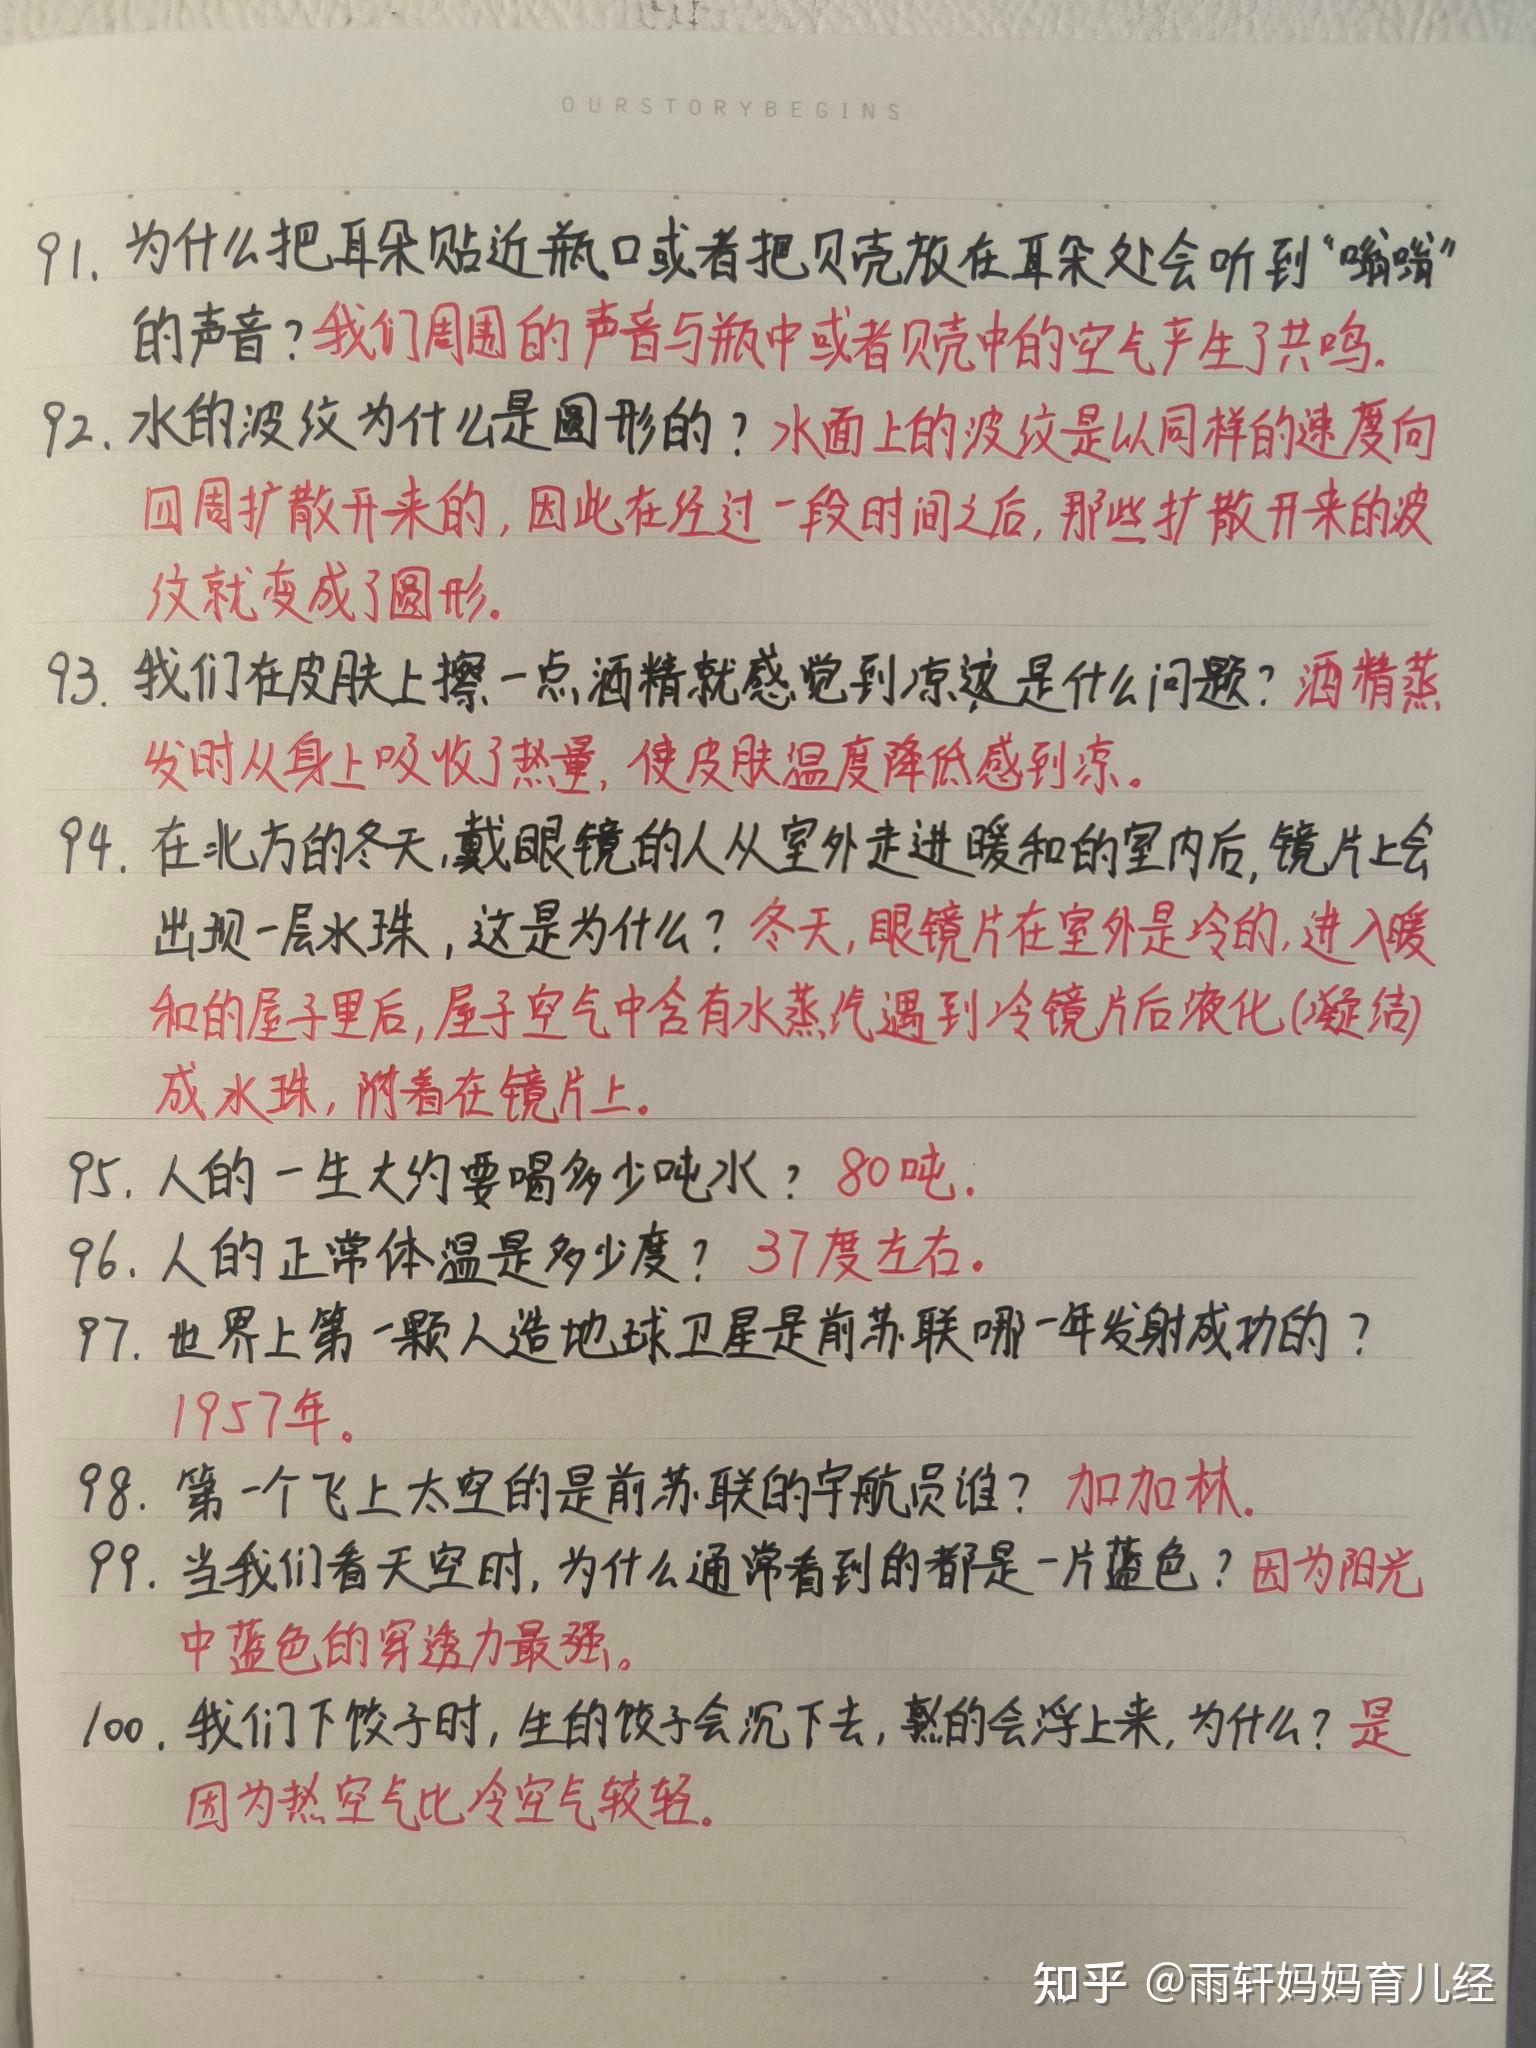 OURSTORYBEGINS
91. 为什么把耳朵贴近瓶口或者把贝壳放在耳朵处会听到“嗡嗡”
的声音?我们周围的声音与瓶中或者贝壳中的空气产生了共鸣.
92. 水的波纹为什么是圆形的?水面上的波纹是以同样的速度向
四周扩散开来的,因此在经过一段时间之后,那些扩散开来的波
纹就变成了圆形。
93. 我们在皮肤上擦一点酒精就感觉到凉这是什么问题?酒精蒸
发时从身上吸收了热量,使皮肤温度降低感到凉。
94. 在北方的冬天,戴眼镜的人从室外走进暖和的室内后,镜片上会
出现一层水珠,这是为什么?冬天,眼镜片在室外是冷的,进入暖
和的屋子里后,屋子空气中含有水蒸汽遇到冷镜片后液化(凝结)
成水珠,附着在镜片上。
95. 人的一生大约要喝多少吨水?80吨.
96. 人的正常体温是多少度?37度左右。
97. 世界上第一颗人造地球卫星是前苏联哪一年发射成功的?
1957年。
98. 第一个飞上太空的是前苏联的宇航员谁?加加林.
99. 当我们看天空时,为什么通常看到的都是一片蓝色?因为阳光
中蓝色的穿透力最强。
100. 我们下饺子时,生的饺子会沉下去,熟的会浮上来,为什么?是
因为热空气比冷空气较轻。
知乎 @雨轩妈妈育儿经